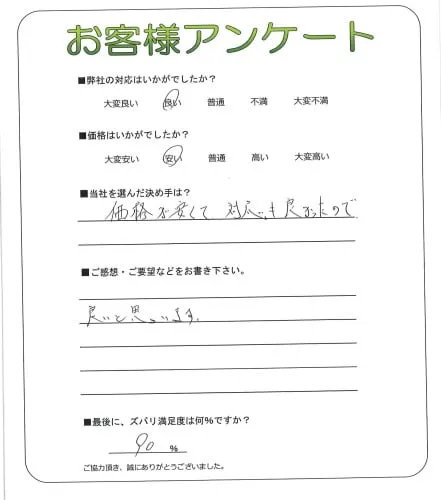 お客様アンケート
■弊社の対応はいかがでしたか?
大変良い 良い 普通 不満 大変不満
■価格はいかがでしたか?
大変安い 安い 普通 高い 大変高い
■当社を選んだ決め手は?
価格が安くて 対応も良かったので
■ご感想・ご要望などをお書き下さい。
良いと思います。
■最後に、ズバリ満足度は何%ですか?
90 %
ご協力頂き、誠にありがとうございました。